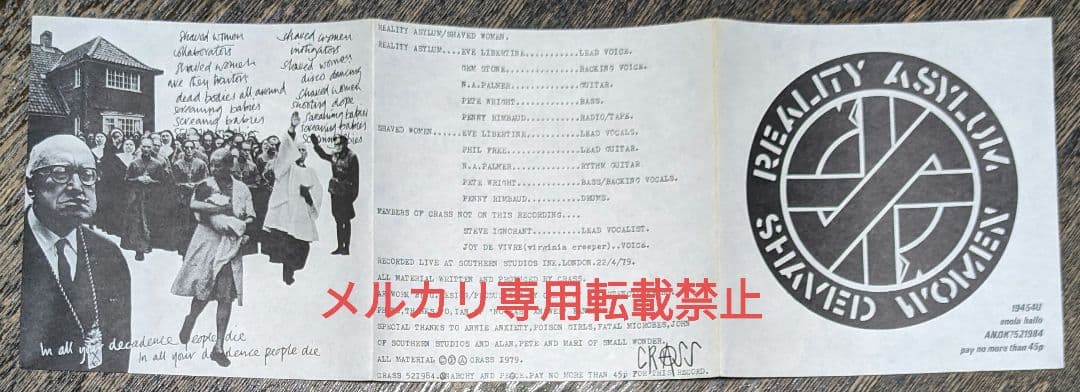 shaved women
collaborators
shaved women
are they traitors
dead bodies all around
screaming babies
screaming babies
shaved women
instigators
shaved women
disco dancing
shaved women
shooting dope
screaming babies
screaming babies
In all your decadence people die
In all your decadence people die
REALITY ASYLUM/SHAVED WOMEN.
REALITY ASYLUM....EVE LIBERTINE..........LEAD VOICE.
GEM STONE............BACKING VOICE.
N.A.PALMER...........GUITAR.
PETE WRIGHT..........BASS.
PENNY RIMBAUD........RADIO/TAPE.
SHAVED WOMEN......EVE LIBERTINE..........LEAD VOCALS.
PHIL FREE............LEAD GUITAR.
N.A.PALMER...........RYTHM GUITAR
PETE WRIGHT..........BASS/BACKING VOCALS.
PENNY RIMBAUD........DRUMS.
MEMBERS OF CRASS NOT ON THIS RECORDING....
STEVE IGNORANT.......LEAD VOCALIST.
JOY DE VIVRE(virginia creeper)..VOICE.
RECORDED LIVE AT SOUTHERN STUDIOS INK.LONDON.22/4/79.
ALL MATERIAL WRITTEN AND PRODUCED BY CRASS.
メルカリ専用転載禁止
SPECIAL THANKS TO ANNIE ANXIETY,POISON GIRLS,FATAL MICROBES,JOHN
OF SOUTHERN STUDIOS AND ALAN,PETE AND MARI OF SMALL WONDER.
ALL MATERIAL ©℗Ⓐ CRASS 1979.
CRASS 521984.ANARCHY AND PEACE.PAY NO MORE THAN 45p FOR THIS RECORD.
CRASS
REALITY ASYLUM
SHAVED WOMEN
19454U
enola hallo
AN.OK?521984
pay no more than 45p